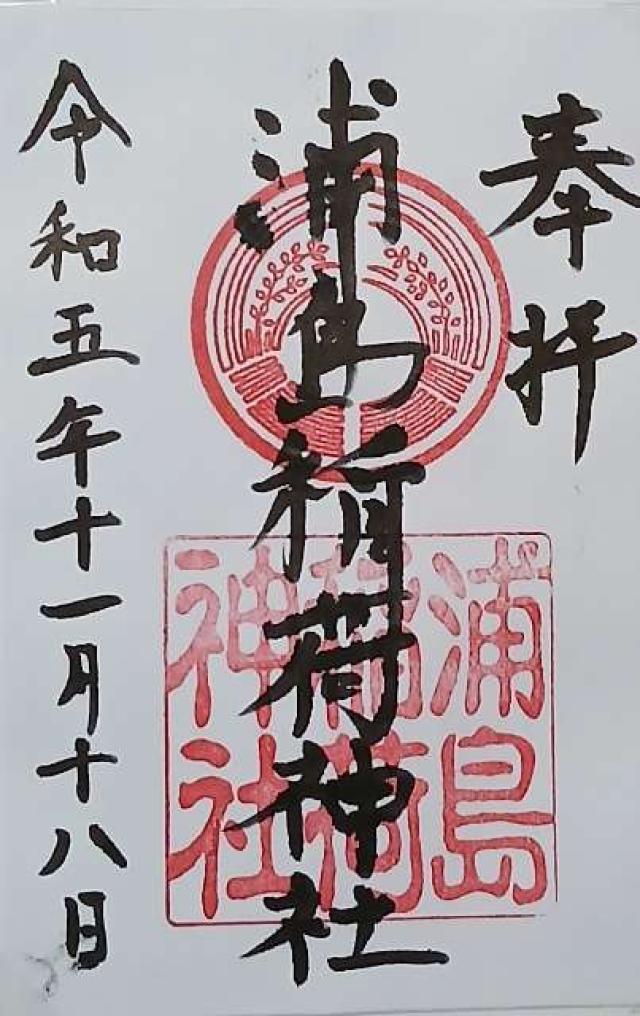 奉拝
浦島稲荷神社
浦島
稲荷
神社
令和五年十一月十八日